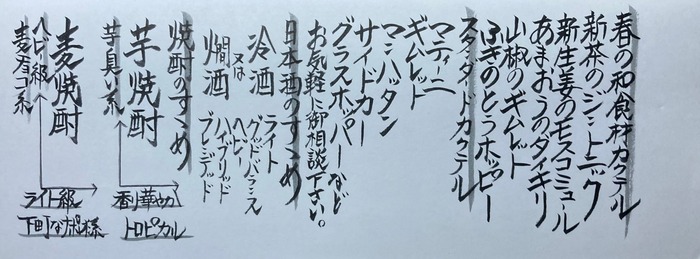 春の和食材カクテル
新茶のジントニック
新生姜のモスコミュル
あまおうのダイキリ
山椒のギムレット
ふきのとうホッピー
スタンダードカクテル
マティーニ
ギムレット
マンハッタン
サイドカー
グラスホッパーなど
お気軽に御相談下さい。
日本酒のすすめ
冷酒
又は
燗酒
ライト
グッドバランス
ヘビー
ハイブリッド
ブレンデッド
焼酎のすすめ
芋焼酎
芋臭い系
香り華やか
トロピカル
麦焼酎
ヘビー級
麦チョコ系
ライト級